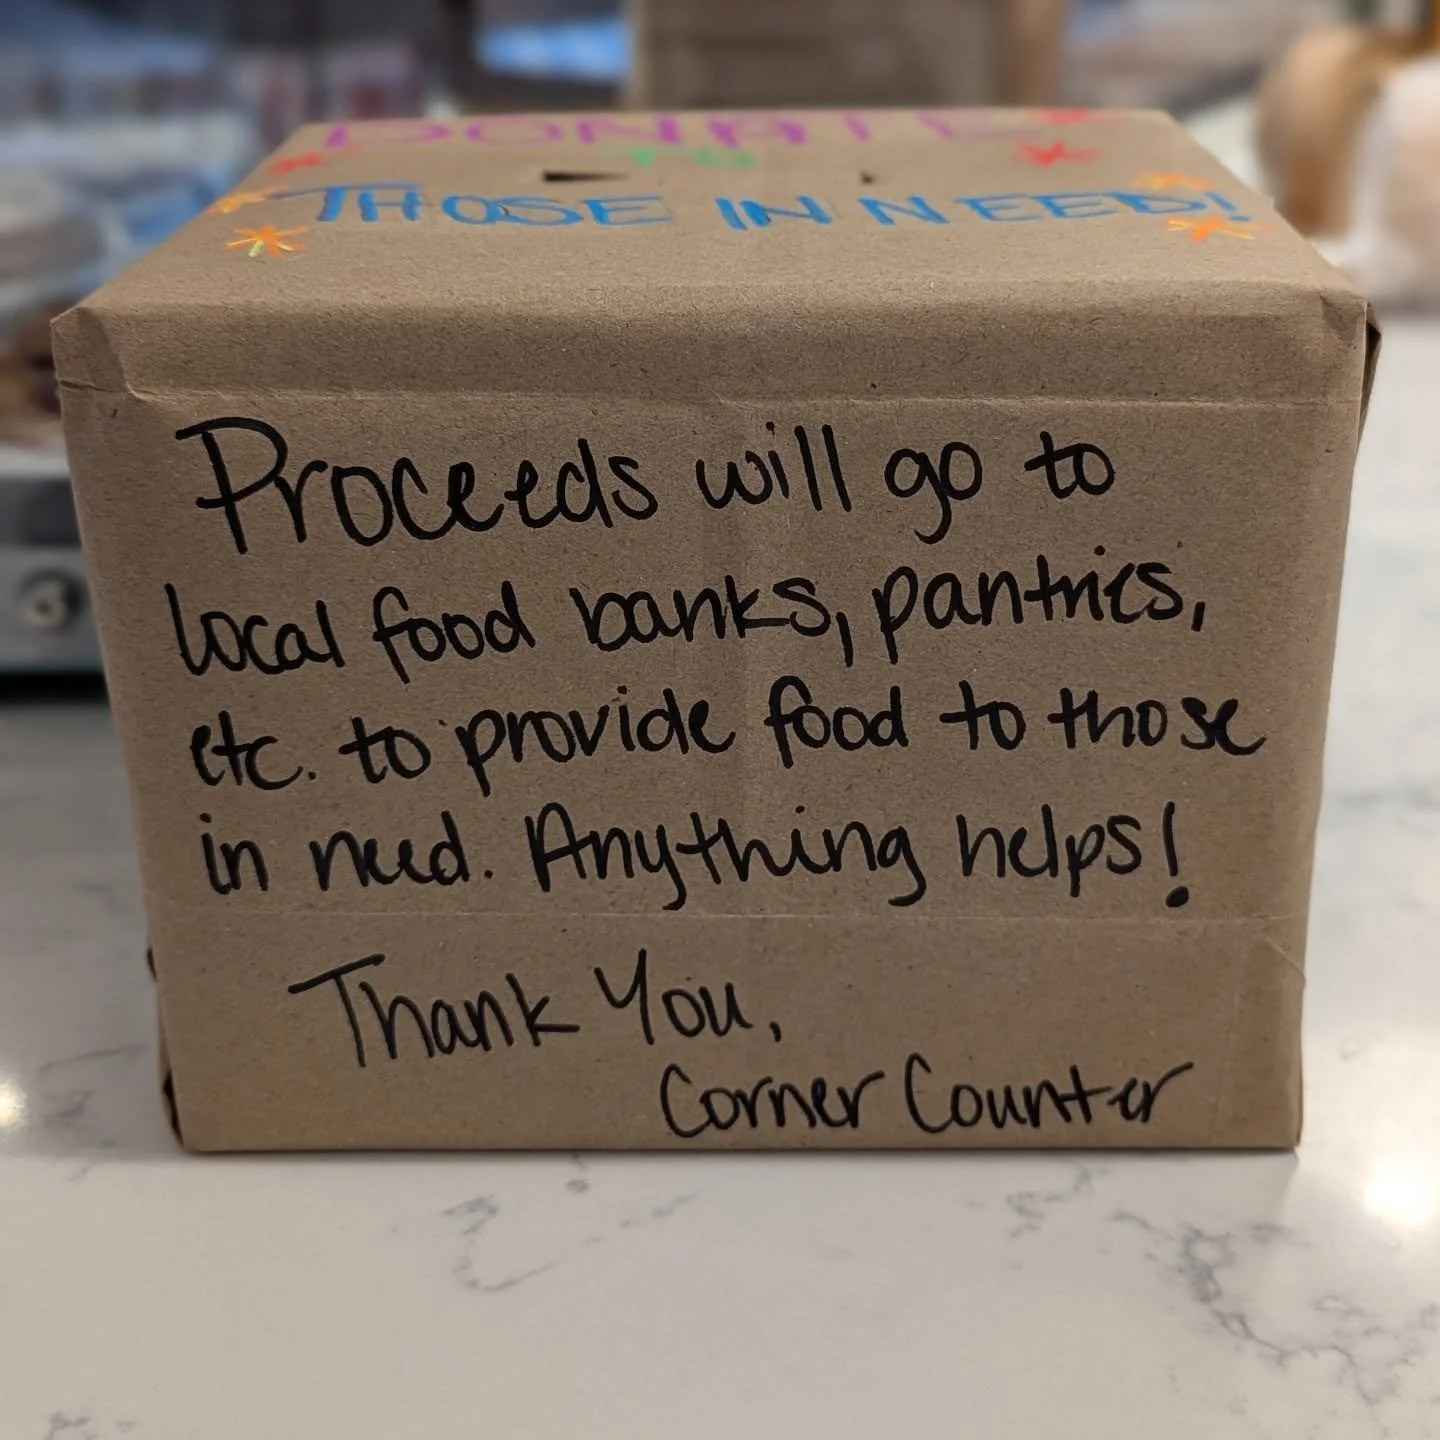 DONATE
TO
THOSE IN NEED!
Proceeds will go to
local food banks, pantries,
etc. to provide food to those
in need. Anything helps!
Thank You,
Corner Counter